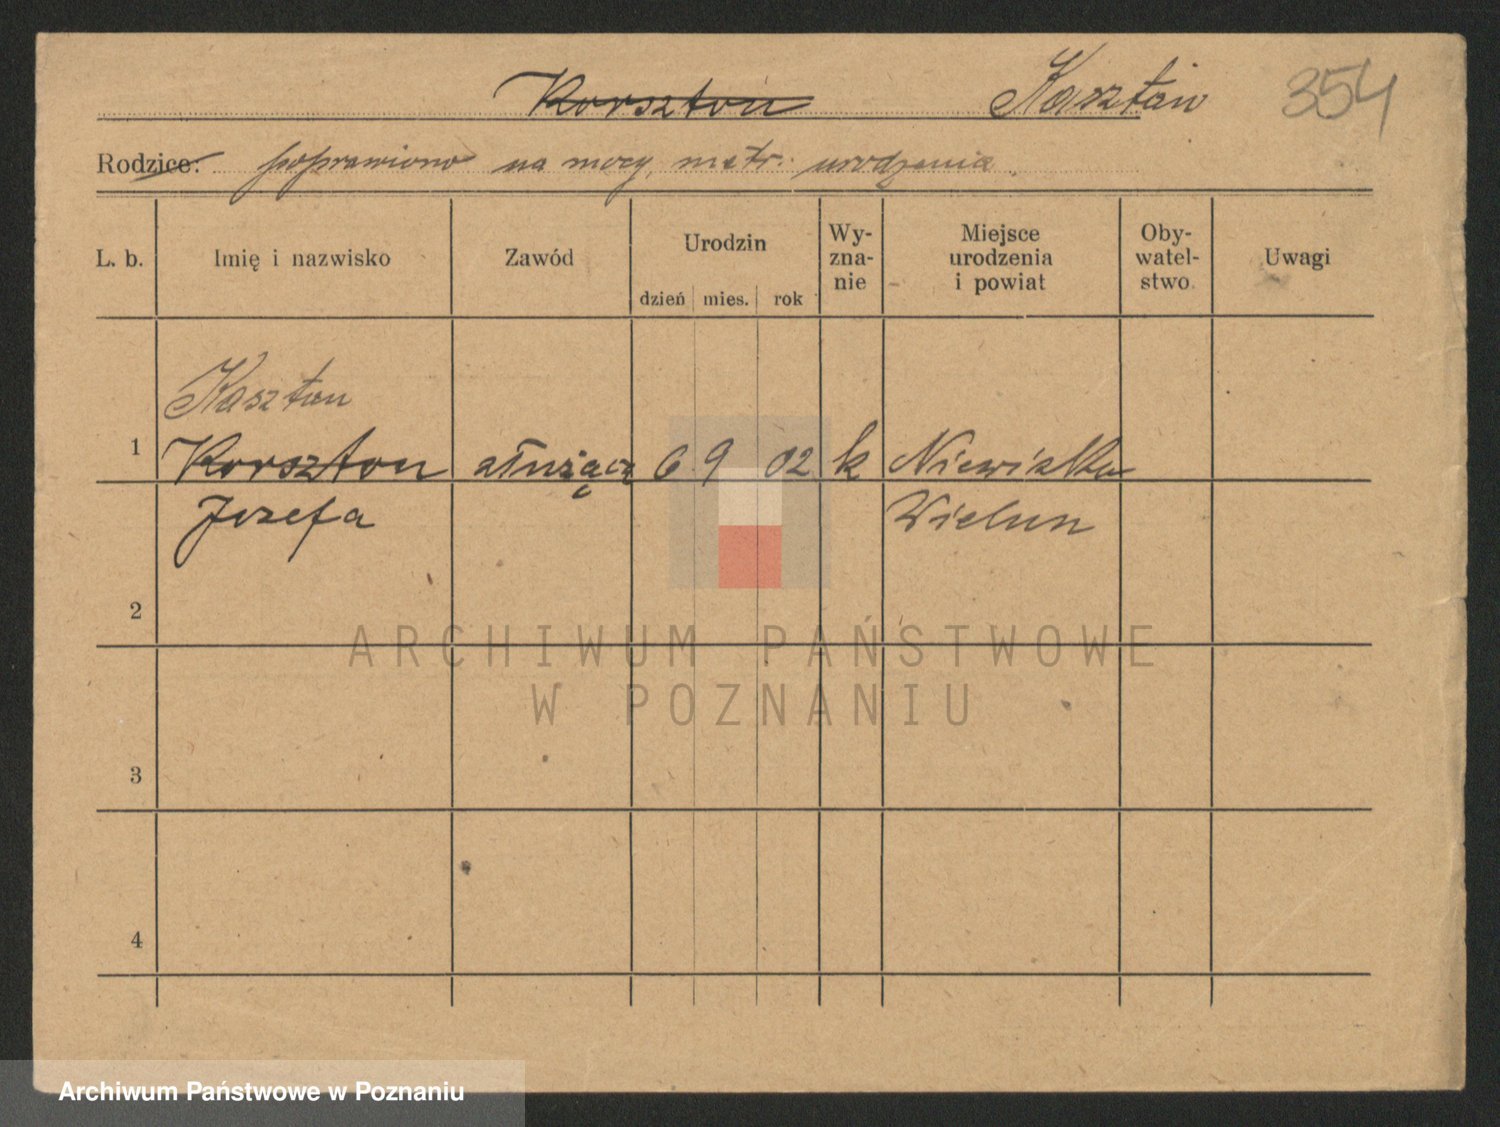 Korszton Kasztan 354
Rodzice: poprawiono na mocy metr. urodzenia.
L. b. Imię i nazwisko Zawód Urodzin dzień mies. rok Wy-zna-nie Miejsce urodzenia i powiat Oby-watel-stwo Uwagi
Kasztan
1 Korszton służąca 6 9 02 k Niewiszka
Józefa Wielun
2
ARCHIWUM PAŃSTWOWE
W POZNANIU
3
4
Archiwum Państwowe w Poznaniu